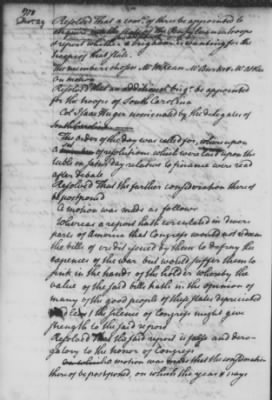 1778
Resolved That a com.ee of three be appointed to
enquire into the state of the Pensylvania troops
& report whether a brigadier is wanting for the
troops of that state
The members chosen Mr M'Kean Mr Burke & Mr
On motion
Resolved That an additional brig.r be appointed
for the troops of South Carolina
Col Isaac Huger nominated by the delegates of
South Carolina
The order of the day was called for, whereupon
a of resolutions which were laid upon the
table on saturday relative to finance were read
after debate
Resolved That the farther consideration thereof
be postponed
A motion was made as follows
Whereas a report hath circulated in divers
parts of America that Congress would not redeem
the bills of credit issued by them to defray the
expences of the war but would suffer them to
sink in the hands of the holder whereby the
value of the said bills hath in the opinion of
many of the good people of these states depreciated
and lest the silence of Congress might give
strength to the said report
Resolved That the said report is false and dero-
gatory to the honor of Congress
a motion was made that the consideration
thereof be postponed, on which the yeas & nays